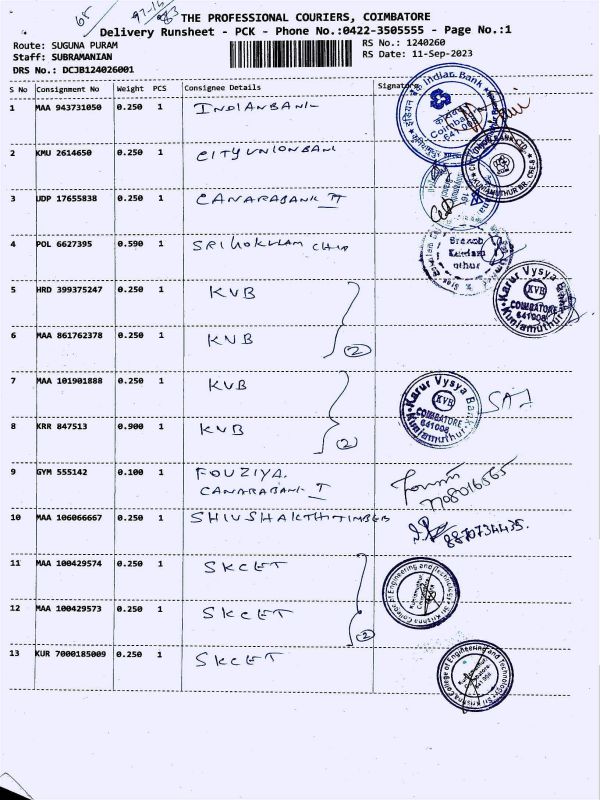 65
97-16
83
THE PROFESSIONAL COURIERS, COIMBATORE
Delivery Runsheet - PCK - Phone No.:0422-3505555 - Page No.:1
Route: SUGUNA PURAM RS No.: 1240260
Staff: SUBRAMANIAN RS Date: 11-Sep-2023
DRS No.: DCJB124026001
S No Consignment No Weight PCS Consignee Details Signature
1 MAA 943731050 0.250 1 INDIANBANK
2 KMU 2614650 0.250 1 CITYUNIONBAN
3 UDP 17655838 0.250 1 CANARABANK II
4 POL 6627395 0.590 1 SRI GOKULAM CHIP
5 HRD 399375247 0.250 1 KVB
6 MAA 861762378 0.250 1 KVB
2
7 MAA 101901888 0.250 1 KVB
8 KRR 847513 0.900 1 KVB
2
9 GYM 555142 0.100 1 FOUZIYA.
CANARABANK I
7708016565
10 MAA 106066667 0.250 1 SHIVSHAKTHITIMBER
8870734435.
11 MAA 100429574 0.250 1 SKCET
12 MAA 100429573 0.250 1 SKCET
2
13 KUR 7000185009 0.250 1 SKCET
Indian Bank
Coimbatore
641008
KUNIAMUTHUR BR.
Branch
Kuniam
uthur
Karur Vysya Bank
KVB
COIMBATORE
641008
Kuniamuthur
Karur Vysya Bank
KVB
COIMBATORE
641008
Kuniamuthur
Sri Krishna College of Engineering and Technology
Sri Krishna College of Engineering and Technology